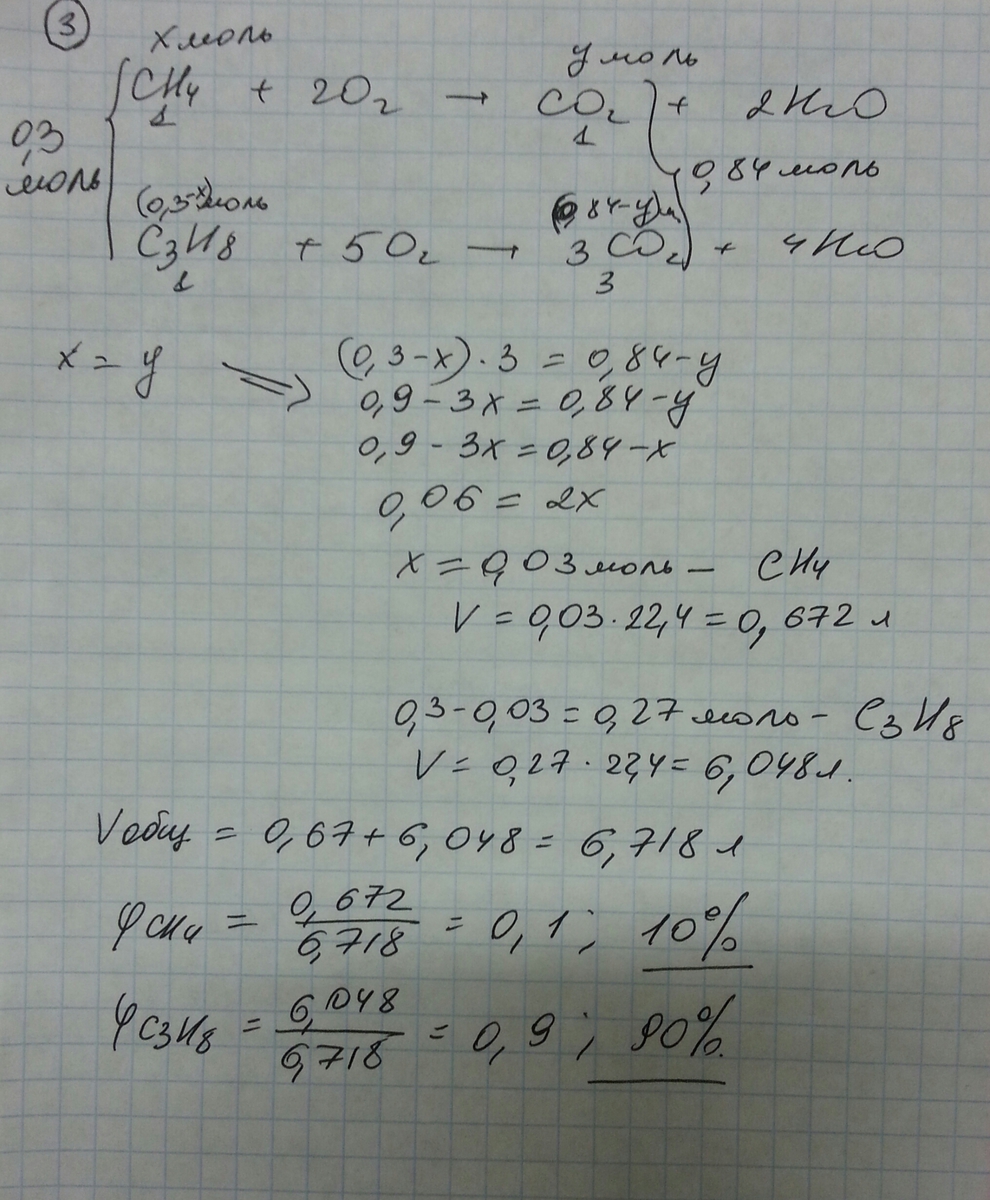 3
x моль y моль
0,3 моль { CH4 + 2O2 → CO2 } + 2H2O
1 1
0,84 моль
(0,3-x)моль (0,84-y)м
C3H8 + 5O2 → 3CO2 + 4H2O
1 3
x = y ⇒ (0,3-x)·3 = 0,84-y
0,9 - 3x = 0,84 - y
0,9 - 3x = 0,84 - x
0,06 = 2x
x = 0,03 моль - CH4
V = 0,03·22,4 = 0,672 л
0,3-0,03 = 0,27 моль - C3H8
V = 0,27·22,4 = 6,048 л.
Vобщ = 0,67 + 6,048 = 6,718 л
φCH4 = 0,672/6,718 = 0,1; 10%
φC3H8 = 6,048/6,718 = 0,9; 90%.